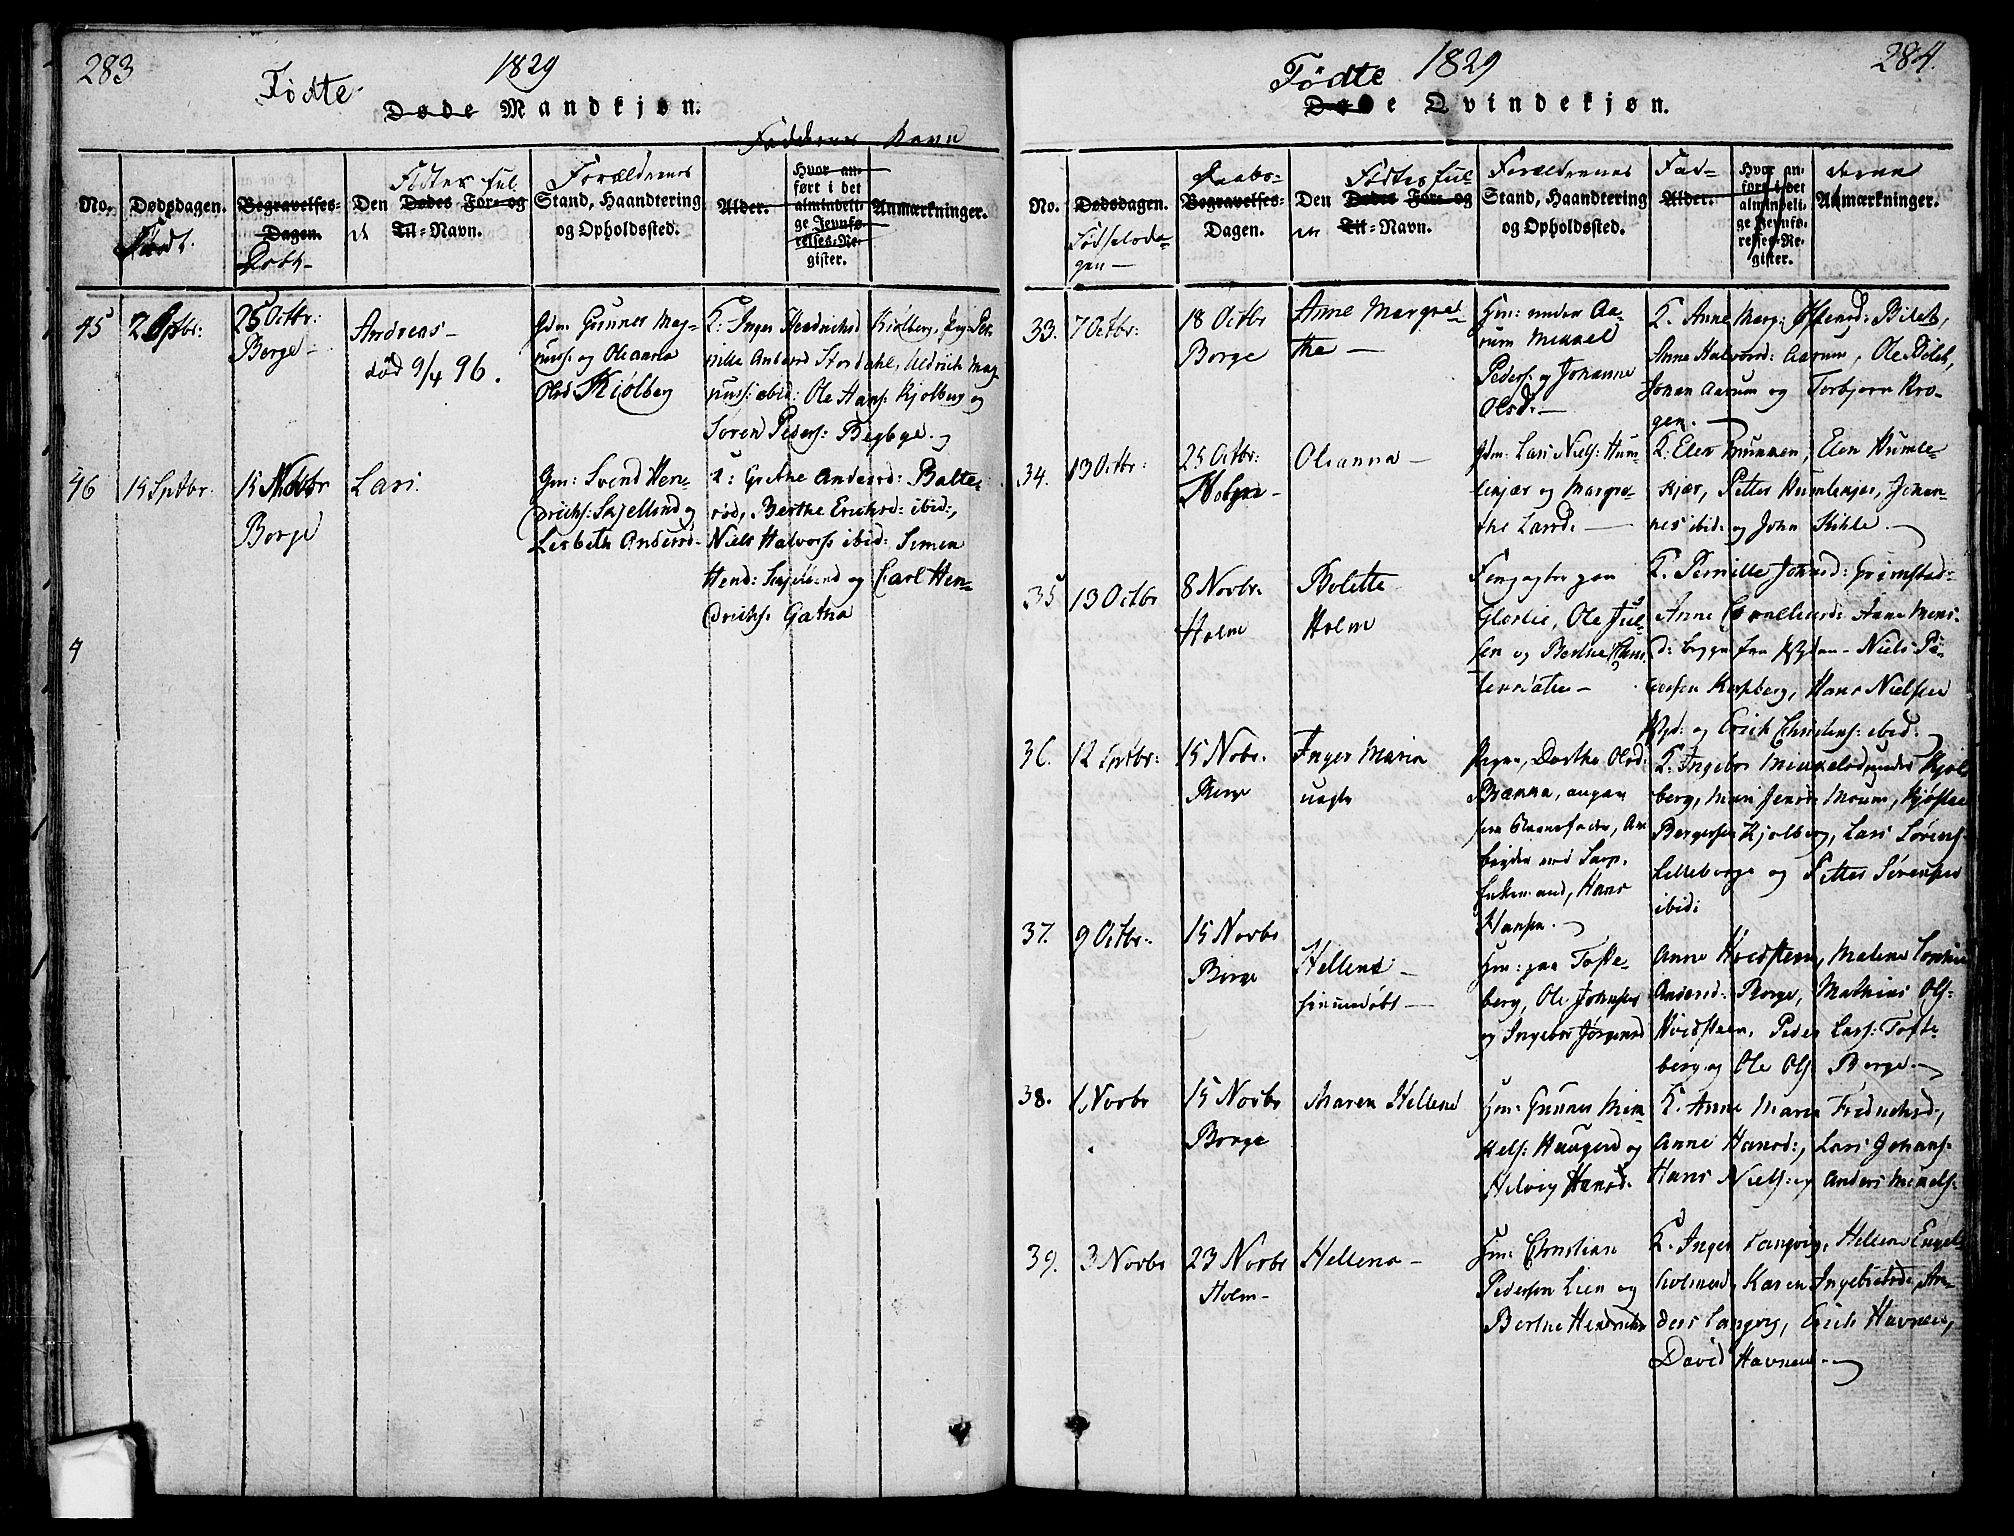 283
1829
Fødte
Døde Mandkjøn.
Faddernes Navn
No.
Dødsdagen.
Født.
Begravelses-
Dagen.
Døbt
Fødtes ful-
Den Dødes For- og
Til-Navn.
Forældrenes
Stand, Haandtering
og Opholdssted.
Alder.
Hvor an-
ført i det
almindeli-
ge Jevnfø-
relses-Re-
gister.
Anmærkninger.
45
25 Octbr:
Borge
Andreas
død 9/4 96.
Gdm: Gunner Mag-
nuss: og Oleana
Olsd Kiølberg
F: Inger Hendrichsd Kiølberg,
Andersd Stordahl, Uldrich Mag-
nuss: ibid: Ole Hans: Kjølberg og
Søren Peders: Begbye.
46
15 Sptbr.
15 Novbr
Borge
Lars.
Gm: Svend Hen-
drichs: Skjellend og
Lisbeth Andersd
F: Grethe Andersd: Balte-
rød, Berthe Erichsd: ibid:,
Niels Halvors: ibid: Simen
Hend: Skjellend og Carl Hen-
drichs: Gatha
4
284.
1829
Fødte
Døde Qvindekjøn.
No.
Dødsdagen.
Fødselsda-
gen
Daabs-
Begravelses-
Dagen.
Fødtes ful-
Den Dødes For- og
Til-Navn.
Forældrenes
Stand, Haandtering
og Opholdssted.
Fad-
Alder.
Hvor an-
ført i det
almindeli-
ge Jevnfø-
relses-Re-
gister.
derne
Anmærkninger.
33.
7 Octbr:
18 Octbr
Borge
Anne Margre-
the
Hm: under Aa-
rum Mikkel
Peders: og Johanne
Olsd:
F. Anne Marg: Olsensd: Bilet,
Anne Halvorsd: Aarum, Ole Bilet,
Johan Aarum og Torbjørn Kro-
gen.
34.
13 Octbr:
25 Octbr:
Oleanna
Gdm: Lars Niels: Hum-
lekjær og Margre-
the Larsd:
F. Elen Brunken, Elen Humle-
kjær, Petter Humlekjær, Johan-
nes ibid: og John Kihle.
35
13 Octbr
8 Novbr:
Holm
Bolette
Holm
Gloslie, Ole Jul-
sen og Berthe
F. Pernille Johnsd: Grimstad
Anne Corneliusd: Anne Mons-
d: begge fra Niels Pe-
dersen Kapberg, Hans Nielsen
og Erich Christens: ibid.
36.
12 Sptbr:
15 Nobr.
Borge
Inger Maria
uægte
Pigen, Dorthe Olsd:
Brænna, angav
som Barnefader, Ar-
beider ved Sarp,
Hans
Hansen.
F. Ingebor Mikkelsd under Kjøl-
berg, Mari Jensd: Moum, Kjøstel
Bergersen Kjølberg, Lars Sørens:
Lilleborge og Petter Sørensen
ibid:
37.
9 Octbr:
15 Novbr
Borge
Hellene
hjemmedøbt
Hm: paa Tofte-
berg, Ole Johnsen
og Ingebor Jørgensd
Anne Hvidsteen, Malene Sophie
Andersd: Borge, Mathias Ols:
Hvidsteen, Peder Lars: Tofte-
berg og Ole Ols: Borge.
38.
1 Novbr
15 Novbr
Borge
Maren Hellene
Hm: Gunner Mik-
kels: Haugerd og
Helvig Hansd:
F. Anne Maria Fredrichsd:,
Anne Hansd:, Lars Johans:
Hans Niels: og Anders Mikkels:
39.
3 Novbr
23 Novbr
Holm
Hellena
Hm: Christian
Pedersen Lien og
Berthe Hendrichsd
F. Inger Langvig, Hellene Engel-
holmend, Karen Ingebretsd: An-
ders Langvig, Erich Havnen,
David Havnen.